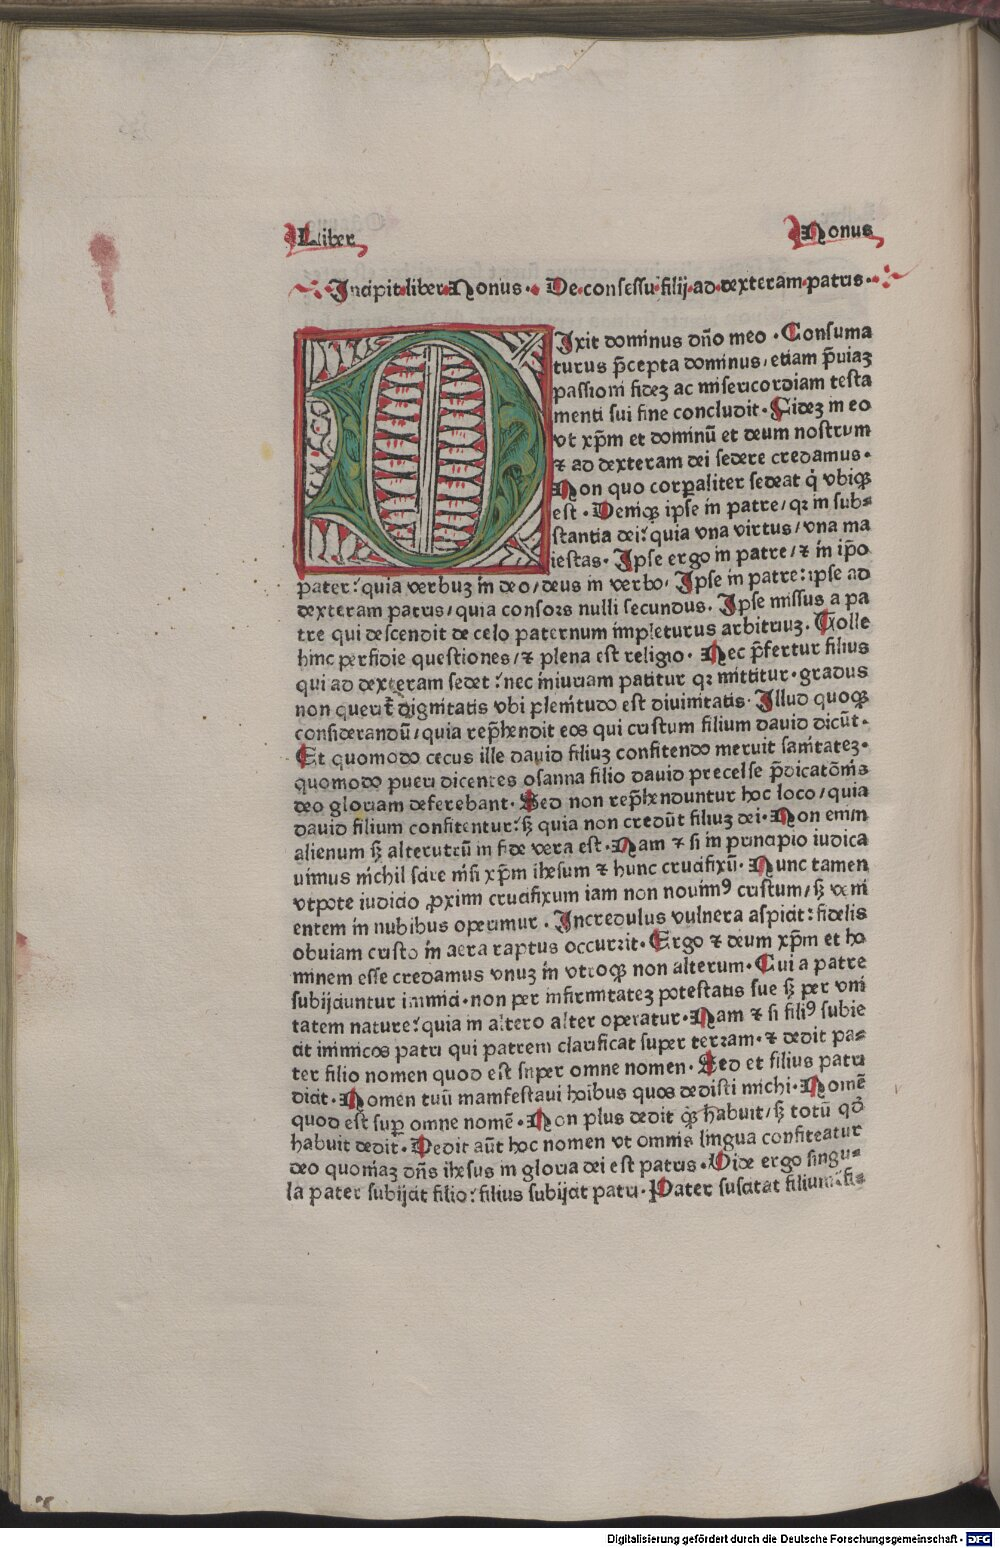 Liber Nonus
Incipit liber Nonus. De consessu filij ad dexteram patris.
Dixit dominus dño meo. Consuma
turus p̃cepta dominus/ etiam p̃uiaꝫ
passioni fideꝫ ac misericordiam testa
menti sui fine concludit. Fideꝫ in eo
vt xp̃m et dominũ et deum nostrum
⁊ ad dexteram dei sedere credamus.
Non quo corꝑaliter sedeat q̇ vbiqꝫ
est. Deniqꝫ ipse in patre/ qꝛ in sub⸗
stantia dei: quia vna virtus/ vna ma
iestas. Ipse ergo in patre/ ⁊ in ip̃o
pater: quia verbuꝫ in deo/ deus in verbo. Ipse in patre: ipse ad
dexteram patris/ quia consors nulli secundus. Ipse missus a pa
tre qui descendit de celo paternum impleturus arbitriuꝫ. Tolle
hinc perfidie questiones/ ⁊ plena est religio. Nec p̃fertur filius
qui ad dexteram sedet: nec iniuriam patitur qꝛ mittitur. gradus
non querit̃ dignitatis vbi plenitudo est diuinitatis. Illud quoqꝫ
considerandũ/ quia rep̃hendit eos qui cristum filium dauid dicũt.
Et quomodo cecus ille dauid filiuꝫ confitendo meruit sanitateꝫ.
quomodo pueri dicentes osanna filio dauid precelse p̃dicatõnis
deo gloriam deferebant. Sed non rep̃henduntur hoc loco/ quia
dauid filium confitentur: sꝫ quia non credũt filiuꝫ dei. Non enim
alienum sꝫ alterutrũ in fide vera est. Nam ⁊ si in principio iudica
uimus nichil scire nisi xp̃m ihesum ⁊ hunc crucifixũ. Nunc tamen
vtpote iudicio ꝓximi crucifixum iam non nouimꝰ cristum/ sꝫ veni
entem in nubibus operimur. Incredulus vulnera aspicit: fidelis
obuiam cristo in aera raptus occurrit. Ergo ⁊ deum xp̃m et ho
minem esse credamus vnuꝫ in vtroqꝫ non alterum. Cui a patre
subijciuntur inimici. non per infirmitateꝫ potestatis sue sꝫ per vni
tatem nature: quia in altero alter operatur. Nam ⁊ si filiꝰ subie
cit inimicos patri qui patrem clarificat super terram. ⁊ dedit pa⸗
ter filio nomen quod est super omne nomen. Sed et filius patri
dicit. Nomen tuũ manifestaui hoibus quos dedisti michi. Nomẽ
quod est suꝑ omne nomẽ. Non plus dedit qꝫ habuit/ sꝫ totũ qď
habuit dedit. Dedit aũt hoc nomen vt omnis lingua confiteatur
deo quoniaꝫ dñs ihesus in gloria dei est patris. Vide ergo singu⸗
la pater subijcit filio: filius subijcit patri. Pater suscitat filium: fi⸗
Digitalisierung gefördert durch die Deutsche Forschungsgemeinschaft - DFG